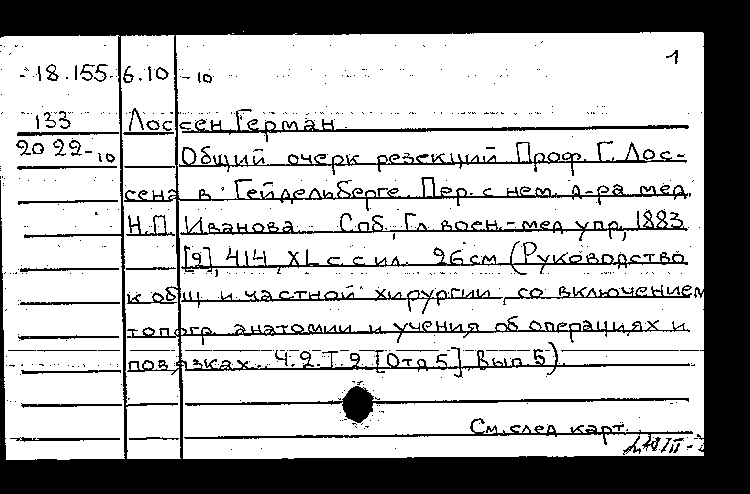 1
18.155.6.10 -10
133
Лоссен, Герман
20 22-10
Общий очерк резекций Проф. Г. Лос-
сена в Гейдельберге. Пер. с нем. д-ра мед.
Н.П. Иванова. Спб, Гл воен.-мед упр, 1883
[2], 414, XL с с ил. 26 см (Руководство
к общ и частной хирургии, со включением
топогр. анатомии и учения об операциях и
повязках. Ч.2.Т.2 [Отд 5], Вып. 5).
См. след карт.